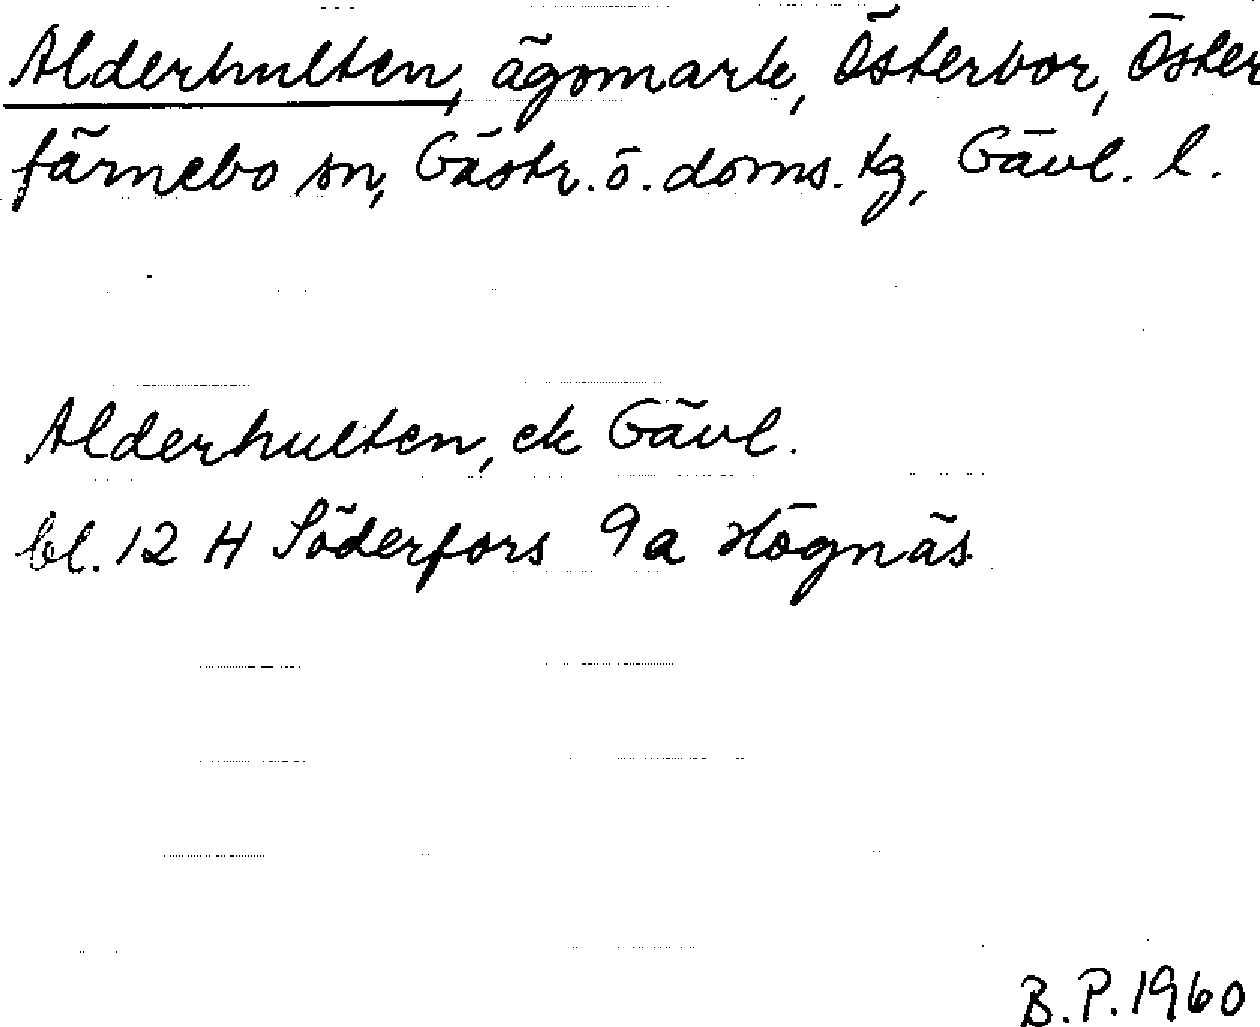 Alderhulten, ägomark, Österbor, Öster
färnebo sn, Gästr. ö. doms. tg, Gävl. l.
Alderhulten, ek Gävl.
bl. 12 H Söderfors 9a Högnäs
B.P. 1960